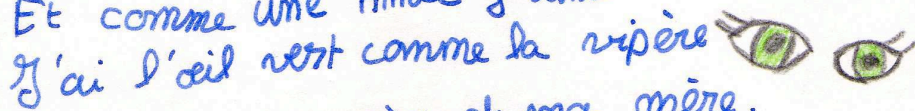 Et comme une
J'ai l'œil vert comme la vipère
ma mère.